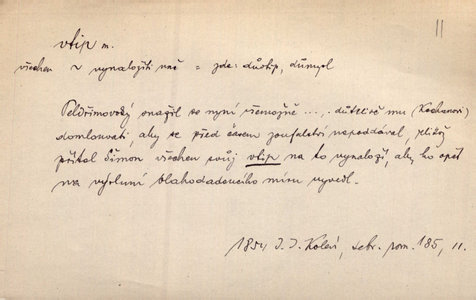 11
vtip m.
všechen ~ vynaložiti nač = zde: důvtip, důmysl
Peldřimovský snažil se nyní všemožně .... důtklivě mu (Kochanovi)
domlouvati, aby se před časem zoufalství nepoddával, jelikož
přítel Šimon všechen svůj vtip na to vynaloží, aby ho opět
na výsluní blahodadoucího míru vyvedl.
1854 J. J. Kolár, sebr. pom. 185, 11.